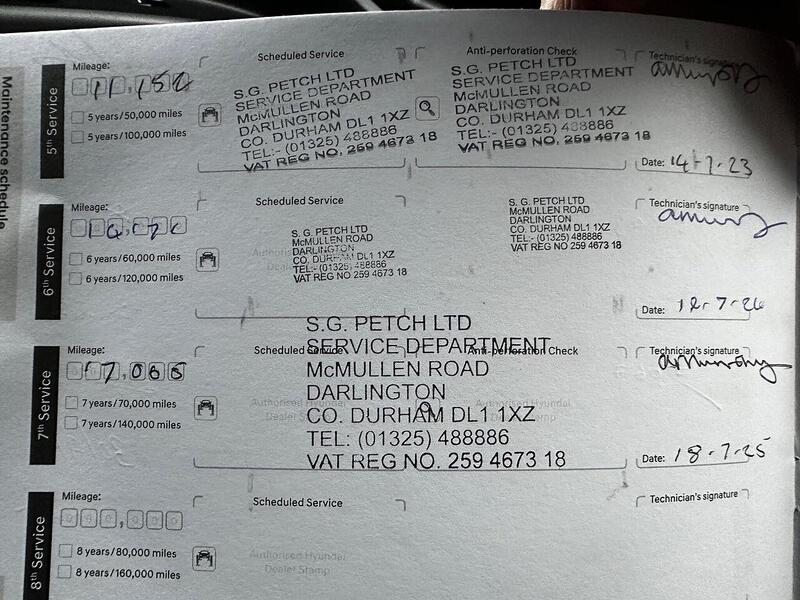 Maintenance schedule
5th Service
Mileage:
11,152
5 years/50,000 miles
5 years/100,000 miles
Scheduled Service
S.G. PETCH LTD
SERVICE DEPARTMENT
McMULLEN ROAD
DARLINGTON
CO. DURHAM DL1 1XZ
TEL:- (01325) 488886
VAT REG NO. 259 4673 18
Anti-perforation Check
S.G. PETCH LTD
SERVICE DEPARTMENT
McMULLEN ROAD
DARLINGTON
CO. DURHAM DL1 1XZ
TEL:- (01325) 488886
VAT REG NO. 259 4673 18
Technician's signature
Date: 14-7-23
6th Service
Mileage:
6 years/60,000 miles
6 years/120,000 miles
Scheduled Service
S.G. PETCH LTD
McMULLEN ROAD
DARLINGTON
CO. DURHAM DL1 1XZ
TEL:- (01325) 488886
VAT REG NO. 259 4673 18
S.G. PETCH LTD
McMULLEN ROAD
DARLINGTON
CO. DURHAM DL1 1XZ
TEL:- (01325) 488886
VAT REG NO. 259 4673 18
Technician's signature
Date: 12-7-24
7th Service
Mileage:
7 years/70,000 miles
7 years/140,000 miles
Scheduled Service
Anti-perforation Check
Authorised Hyundai
Dealer Stamp
S.G. PETCH LTD
SERVICE DEPARTMENT
McMULLEN ROAD
DARLINGTON
CO. DURHAM DL1 1XZ
TEL: (01325) 488886
VAT REG NO. 259 4673 18
Technician's signature
Date: 18-7-25
8th Service
Mileage:
8 years/80,000 miles
8 years/160,000 miles
Scheduled Service
Authorised Hyundai
Dealer Stamp
Technician's signature